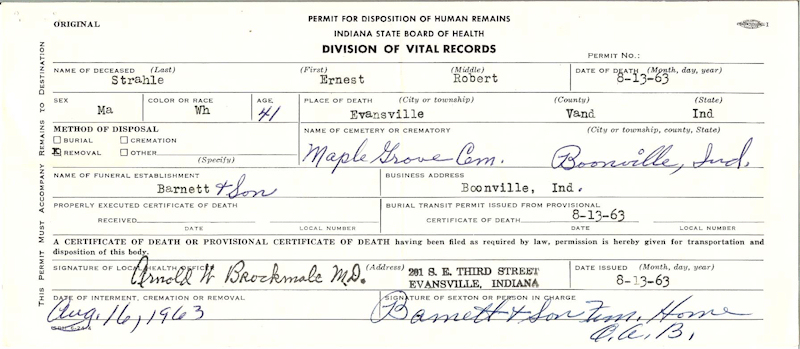 ORIGINAL
PERMIT FOR DISPOSITION OF HUMAN REMAINS
INDIANA STATE BOARD OF HEALTH
DIVISION OF VITAL RECORDS
PERMIT NO.:
THIS PERMIT MUST ACCOMPANY REMAINS TO DESTINATION
NAME OF DECEASED (Last) (First) (Middle) DATE OF DEATH (Month, day, year)
Strahle Ernest Robert 8-13-63
SEX COLOR OR RACE AGE PLACE OF DEATH (City or township) (County) (State)
Ma Wh 41 Evansville Vand Ind
METHOD OF DISPOSAL NAME OF CEMETERY OR CREMATORY (City or township, county, State)
BURIAL CREMATION
X REMOVAL OTHER Maple Grove Cem. Boonville, Ind.
(Specify)
NAME OF FUNERAL ESTABLISHMENT BUSINESS ADDRESS
Barnett & Son Boonville, Ind.
PROPERLY EXECUTED CERTIFICATE OF DEATH BURIAL TRANSIT PERMIT ISSUED FROM PROVISIONAL
RECEIVED CERTIFICATE OF DEATH 8-13-63
DATE LOCAL NUMBER DATE LOCAL NUMBER
A CERTIFICATE OF DEATH OR PROVISIONAL CERTIFICATE OF DEATH having been filed as required by law, permission is hereby given for transportation and
disposition of this body.
SIGNATURE OF LOCAL HEALTH OFFICER (Address) 201 S. E. THIRD STREET DATE ISSUED (Month, day, year)
Arnold W Brockmole M.D. EVANSVILLE, INDIANA 8-13-63
DATE OF INTERMENT, CREMATION OR REMOVAL SIGNATURE OF SEXTON OR PERSON IN CHARGE
Aug. 16, 1963 Barnett & Son Fun. Home
C.A.B.